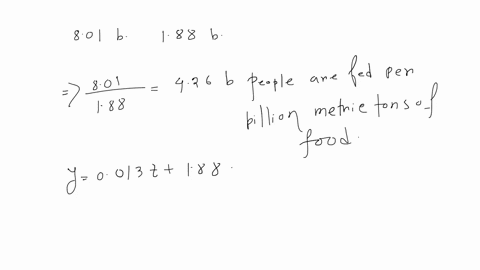 8.01 b. 1.88 b.
=> 8.01 / 1.88 = 4.26 b people are fed per
billion metric tons of
food.
y = 0.013t + 1.88.